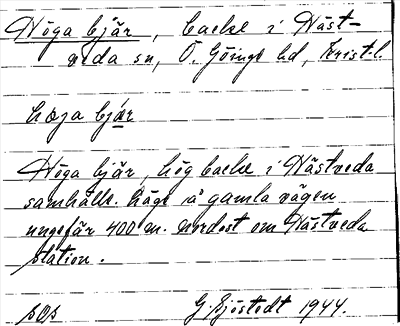 Höga bjär, backe i Näst-
veda sn, Ö. Göinge hd, Krist. l.
höga bjär
Höga bjär, hög backe i Hästveda
samhälle. Låge å gamla vägen
ungefär 400 m. nordost om Hästveda
station.
G. Sjöstedt 1944.